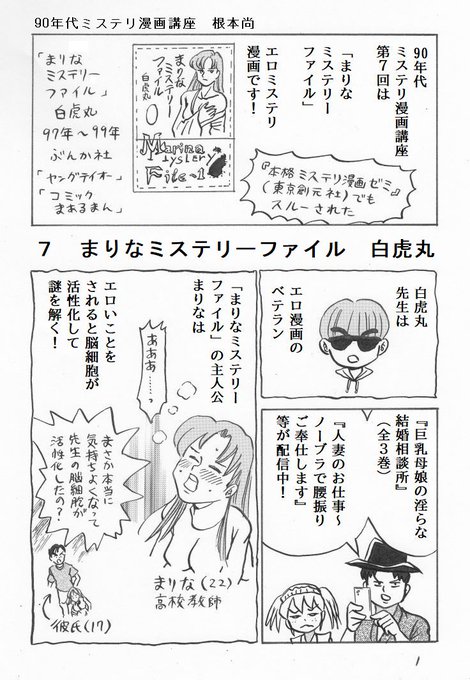 90年代ミステリ漫画講座　根本尚
90年代
ミステリ漫画講座
第7回は
「まりな
ミステリー
ファイル」
エロミステリ
漫画です!
まりな
ミステリー
ファイル
白虎丸
Marina
Mystery
File-1
「まりな
ミステリー
ファイル」
白虎丸
97年〜99年
ぶんか社
「ヤングテイオー」
「コミック
まあるまん」
『本格ミステリ漫画ゼミ』
(東京創元社)でも
スルーされた
7　まりなミステリーファイル　白虎丸
白虎丸
先生は
エロ漫画の
ベテラン
『巨乳母娘の淫らな
結婚相談所』
(全3巻)
『人妻のお仕事〜
ノーブラで腰振り
ご奉仕します』
等が配信中!
「まりなミステリー
ファイル」の主人公
まりなは
エロいことを
されると脳細胞が
活性化して
謎を解く!
あああ……っ
まさか本当に
気持ちよくなって
先生の脳細胞が
活性化したの?
まりな(22)
高校教師
彼氏(17)
1